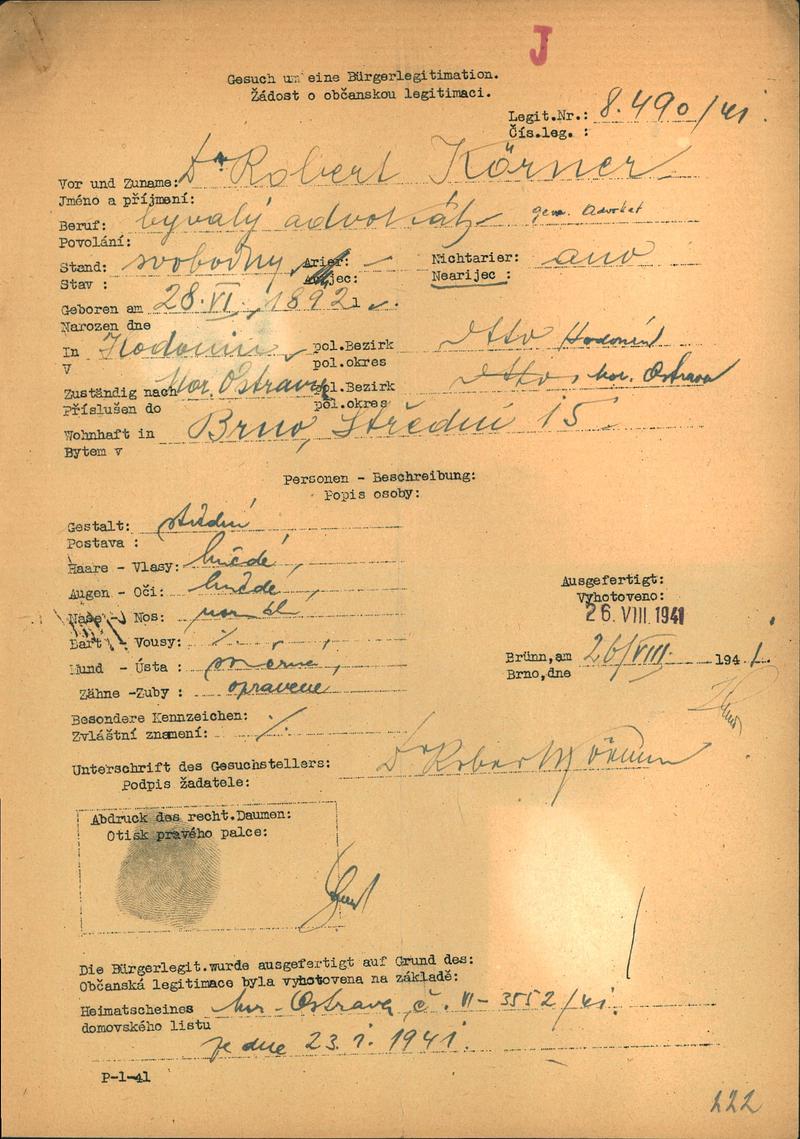 J
Gesuch um eine Bürgerlegitimation.
Žádost o občanskou legitimaci.
Legit.Nr.: 8.490/41
Čís.leg. :
Vor und Zuname: Dr Robert Körner
Jméno a příjmení:
Beruf: bývalý advokát gew. Advokat
Povolání:
Stand: svobodný Arier: — Nichtarier: ano
Stav : Nearijec :
Geboren am 28.VI. 1892
Narozen dne
In Hodonín pol.Bezirk Hodonín
V pol.okres
Zuständig nach Mor. Ostrava pol.Bezirk Mor. Ostrava
Příslušen do pol.okres
Wohnhaft in Brno, Střední 15
Bytem v
Personen - Beschreibung:
Popis osoby:
Gestalt: střední
Postava :
Haare - Vlasy: hnědé,
Augen - Oči: hnědé,
Nase - Nos:
Bart - Vousy: ./.
Mund - Ústa : měrné,
Zähne -Zuby : opravené
Ausgefertigt:
Vyhotoveno:
26. VIII. 1941
Brünn,am 26/VIII. 1941.
Brno,dne
Besondere Kennzeichen:
Zvláštní znamení: ./.
Unterschrift des Gesuchstellers: Dr Robert Körner
Podpis žadatele:
Abdruck des recht.Daumen:
Otisk pravého palce:
Die Bürgerlegit.wurde ausgefertigt auf Grund des:
Občanská legitimace byla vyhotovena na základě:
Heimatscheines Mor. Ostrava, č. VI-3552/41.
domovského listu
ze dne 23. I. 1941.
P-1-41
222